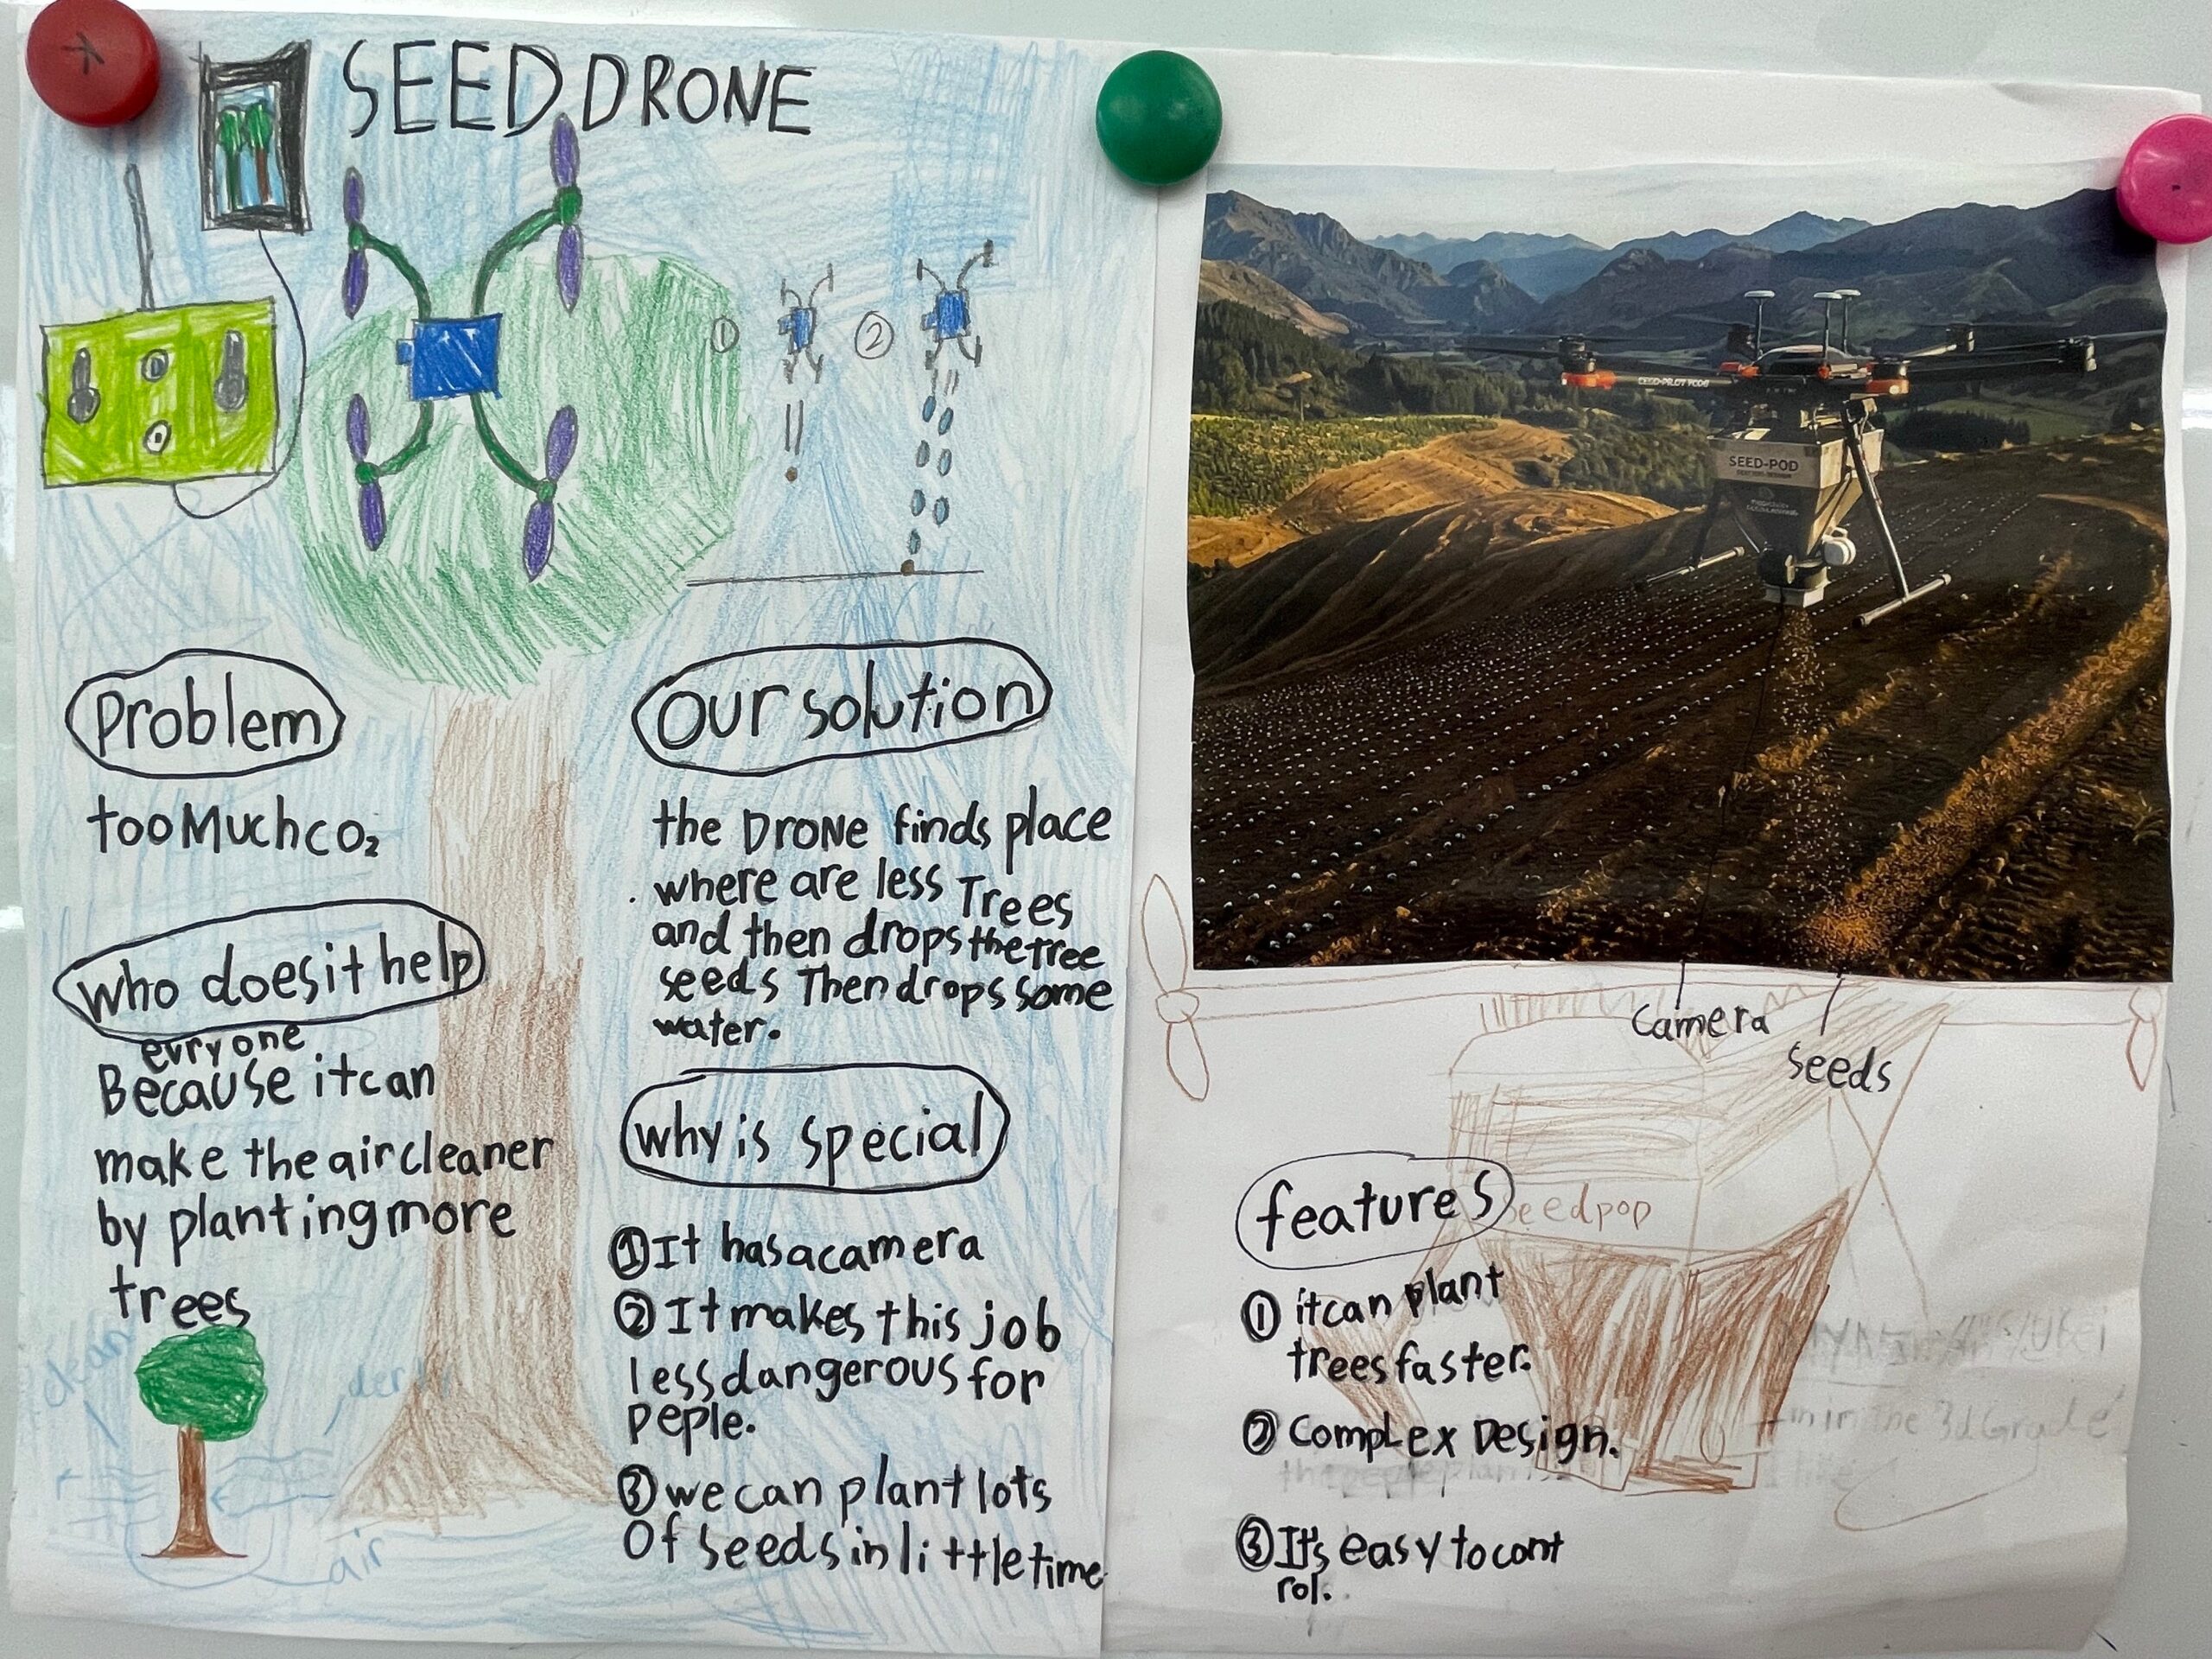 SEED DRONE
① ②
problem
too Much co₂
who does it help
evryone
Because it can
make the air cleaner
by planting more
trees
clean
air
our solution
the DroNe finds place
where are less Trees
and then drops the tree
seeds Then drops some
water.
why is special
① It has a camera
② It makes this job
less dangerous for
peple.
③ we can plant lots
Of seeds in little time
SEED-POD
camera
seeds
seedpop
features
① it can plant
trees faster.
② Complex Design.
③ It's easy to cont
rol.
in the 3d Grade
I like